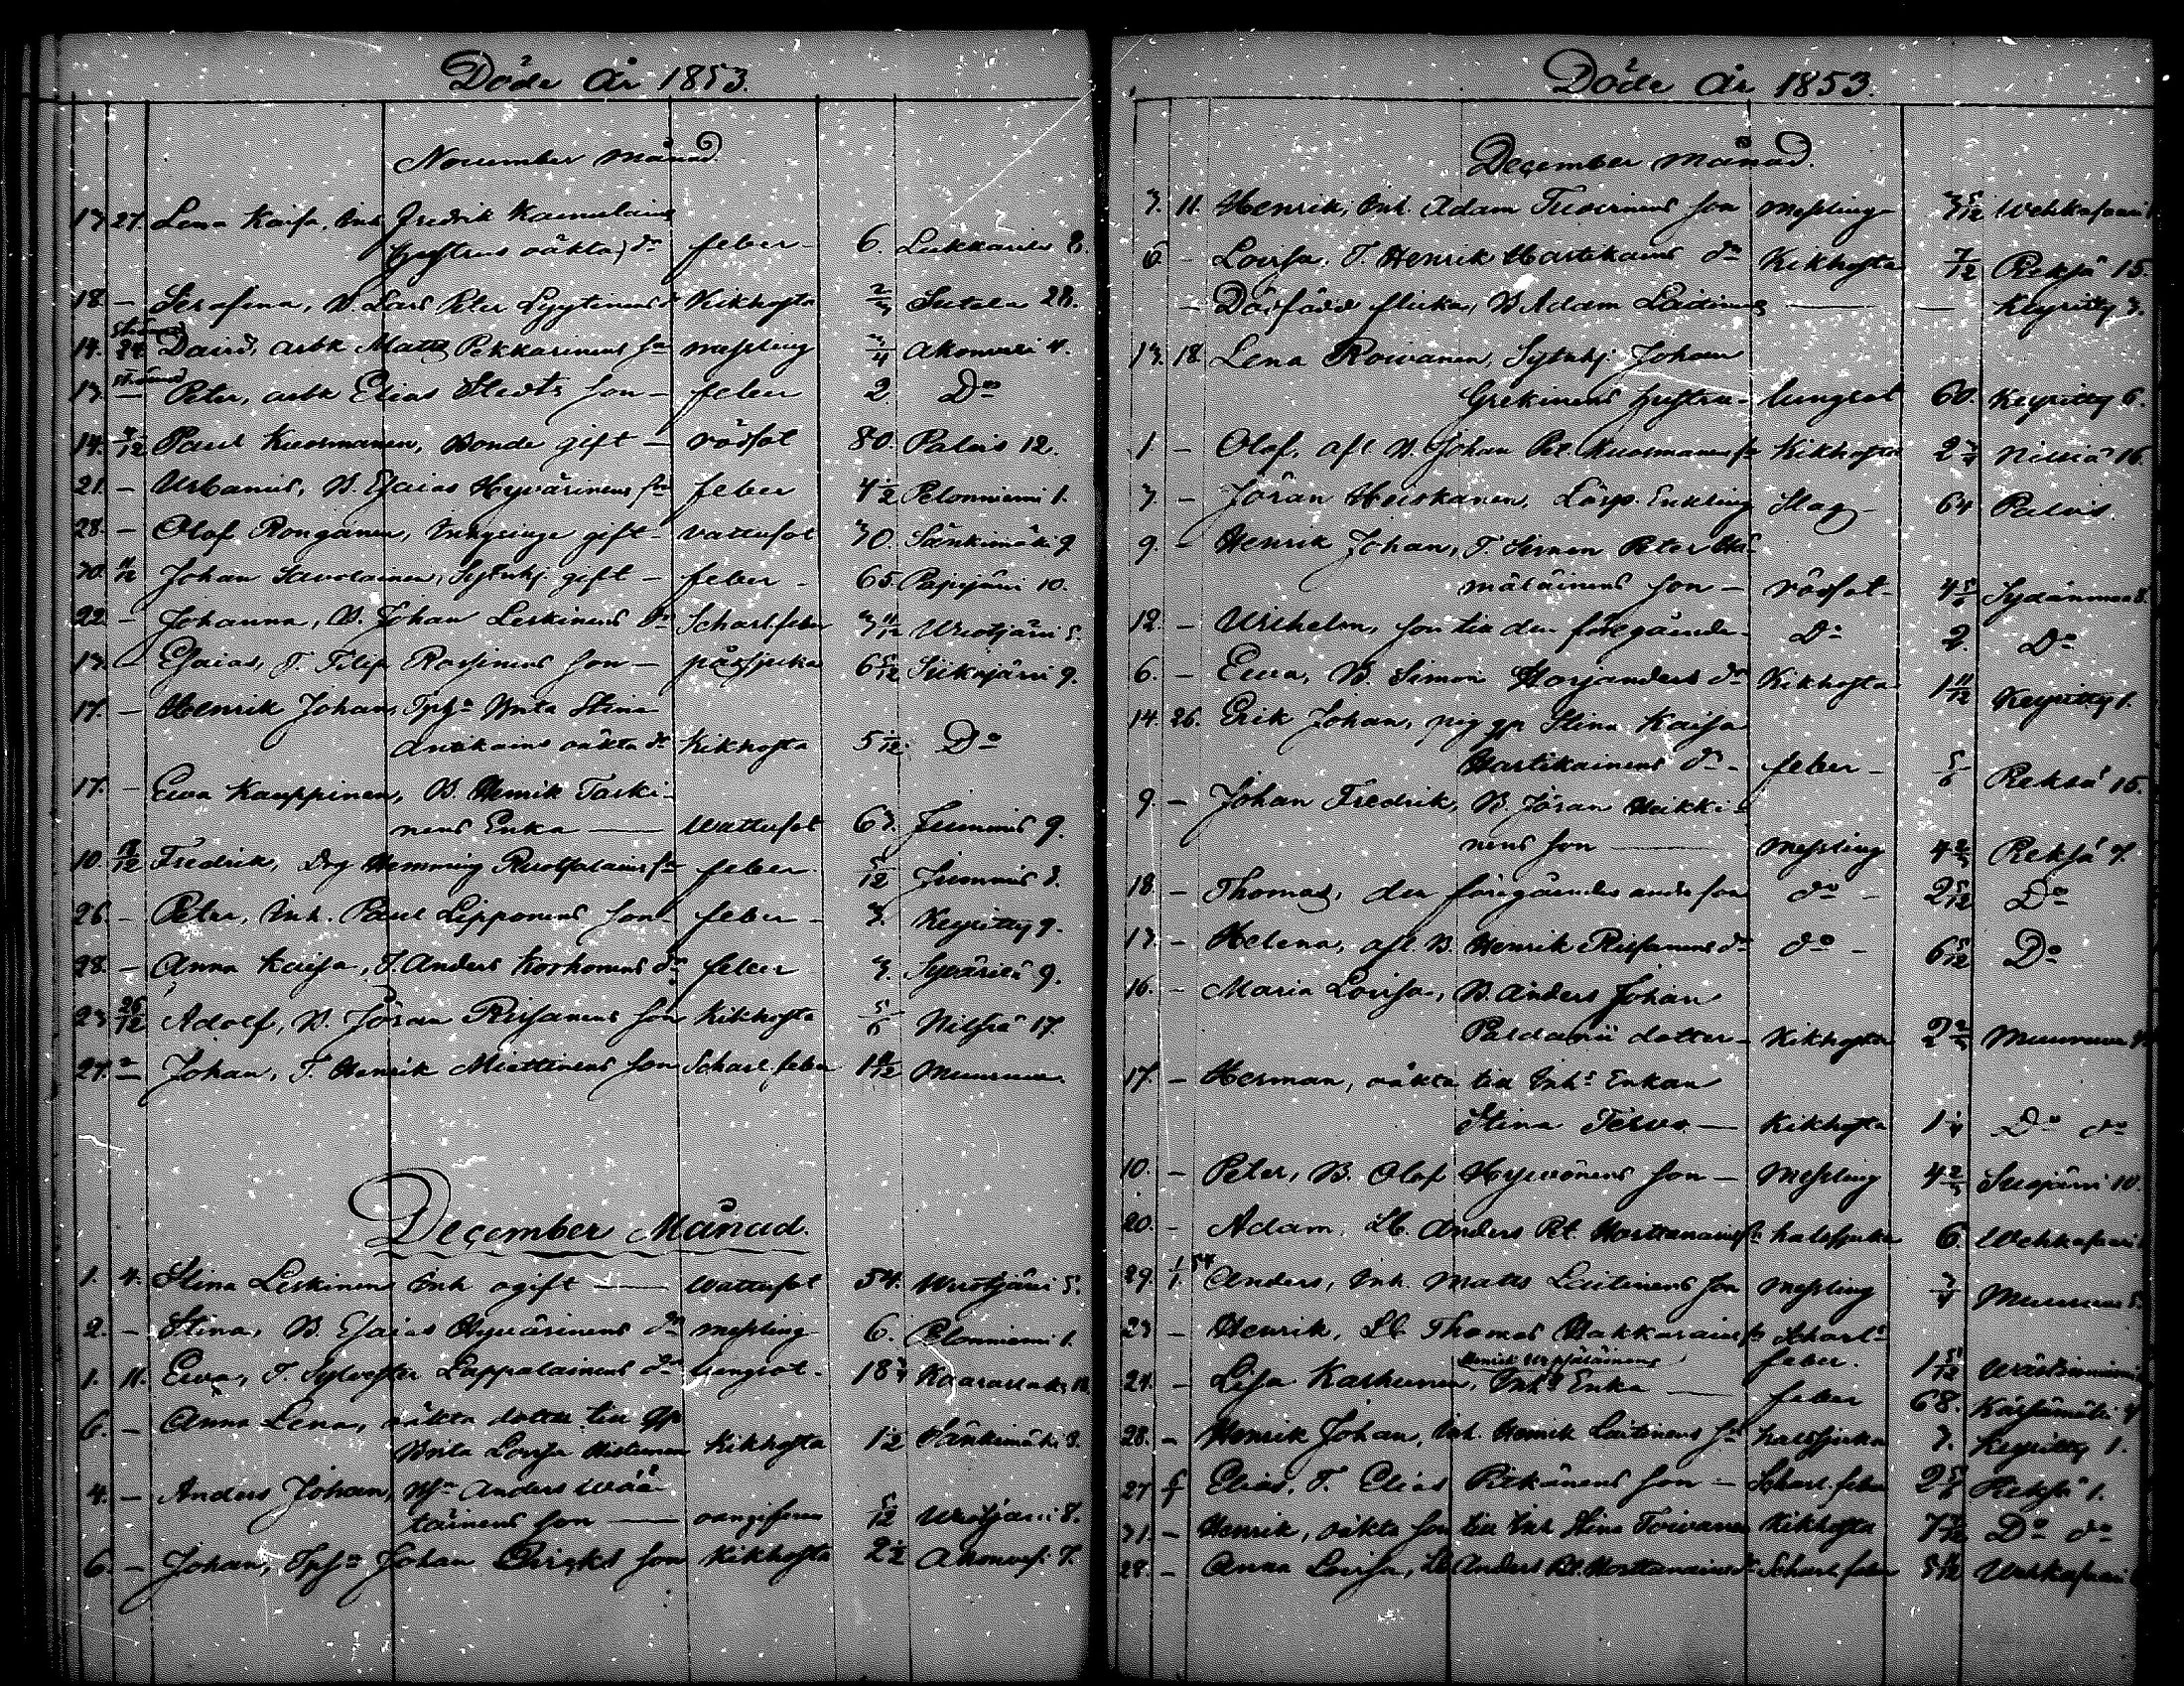 Döde År 1853.
November månad.
13 27. Lena Kaisa, Inh Fredrik Kamulains
hustrus oäkta dr feber - 6. Lukkaris 8.
18 - Serafina, B. Lars Peter Lyytinens dr Kikhosta 2/3 Sutela 28.
14. 24 David, arbk Matts Pekkarinens son messling 3/4 Akonvesi 4.
13. - Peter, arbk Elias Stedts son - feber 2. Do
14. 4/12 Paul Kuosmanen, Bonde gift - rödsot 80. Palois 12.
21. - Urbanus, B. Esaias Hyvärinens son feber 4 1/2 Pelonniemi 1.
28. - Olof Ronganen, Inhysinge gift - vattusot 30. Sänkimäki 9
30. 11/12 Johan Savolainen, Sytnhj gift - feber - 65. Pajujärvi 10.
22 - Johanna, B. Johan Leskinens dr Scharl.feber 3 11/12 Wuotjärvi 5.
13. - Esaias, T. Filip Rossinens son - påssjuka 6 5/12 Siikajärvi 9.
17. - Henrik Johan, Tpha Brita Stina
Antikains oäkta dr Kikhosta 5/12 Do
17. - Ewa Kauppinen, B. Henrik Taski-
nens Enka - Wattusot 63. Jummis 9.
10. 18/12 Fredrik, Drg Hemming Ruotsalains son feber 5/12 Jummis 3.
26 - Peter, Inh. Paul Lipponens son - feber - 3. Keyritty 9.
28. - Anna Kaisa, T. Anders Korhonens dr feber 3. Syvärilä 9.
23 26/12 Adolf, B. Jöran Rissanens son Kikhosta 5/6 Nilsiä 17.
27. - Johan, T. Henrik Miettinens son Scharl.feber 1 11/12 Muuruvesi.
December Månad.
1. 4. Stina Leskinen Inh ogift - Wattusot 54. Wuotjärvi 5.
2. - Stina, B. Esaias Hyvärinens dr messling 6. Pelonniemi 1.
1. 11. Ewa, T. Sylvester Lappalainens dr lungsot - 18 3/4 Kaaraslaks 12.
6. - Anna Lena, oäkta dotter till gp
Brita Lovisa Kikhosta 1 1/2 Sänkimäki 3.
4. - Anders Johan, Anders Wää-
täinens son - 5/12 Wuotjärvi 8.
6. - Johan, Tpha Johan son Kikhosta 2 1/2 Akonvesi 7.
Döde År 1853.
December månad.
3. 11. Henrik, Inh. Adam Tuovinens son messling 3 5/12 Wehkasaari
6 - Lovisa, T. Henrik Hartikains dr Kikhosta 7/12 Reksä 15.
- Dödfödd flicka, B Adam Laitinens - - Keyritty 3.
13. 18. Lena Roivanen, Sytnhj Johan
Grekinens hustru - lungsot 60. Keyritty 6.
1 - Olof, afl B. Johan Pet. Kuosmanens son Kikhosta 2 3/4 Nilsiä 16.
7 - Jöran Heiskanen, Lösp. Enkling Slag - 64 Palois.
9. - Henrik Johan, T. Simon Peter Hä-
mäläinens son - rödsot - 4 5/6 Sydänmaa 8.
12. - Wilhelm, son till den föregående - Do 2. Do
6. - Ewa, B. Simon Horjanders dr Kikhosta 1 11/12 Keyritty 1.
14. 26. Erik Johan, pig gp Stina Kaisa
Hartikainens dr - feber - 5/6 Reksä 15.
9. - Johan Fredrik, B. Jöran Heikki-
nens son - messling 4 2/3 Reksä 7.
18. - Thomas, den föregåendes andra son do - 2 5/12 Do
13 - Helena, afl B. Henrik Rissanens dr do - 6 5/12 Do
16. - Maria Lovisa, B. Anders Johan
Paldanii dotter - Kikhosta 2 2/3 Muuruvesi
17. - Herman, oäkta till Inhs Enkan
Stina Tervo - Kikhosta 1 1/4 Do do
10. - Peter, B. Olof Hyvönens son - Messling 4 2/3 Suojärvi 10.
20. - Adam, Lb. Anders Pet. Horttanains son halssjuka 6. Wehkasaari
29. 1/1 54 Anders, Inh. Matts Laitinens son messling 3/4 Muuruvesi 5.
23 - Henrik, Lb Thomas Hakkarains son Scharl-
feber. 1 5/12
24. - Lisa Karhunen, Inhs Enka - feber 68. Kärsämäki 4
28. - Henrik Johan, Inh. Henrik Laitinens son halssjuka 3. Keyritty 1.
27 6/1 Elias, T. Elias Pitkänens son - Scharl.feber 2 5/6 Reksä 1.
31. - Henrik, oäkta son till Inh Stina Toivanen Kikhosta 7 7/12 Do do
28. - Anna Lovisa, Lb Anders Pet. Horttanains dr Scharl.feber Wehkasaari